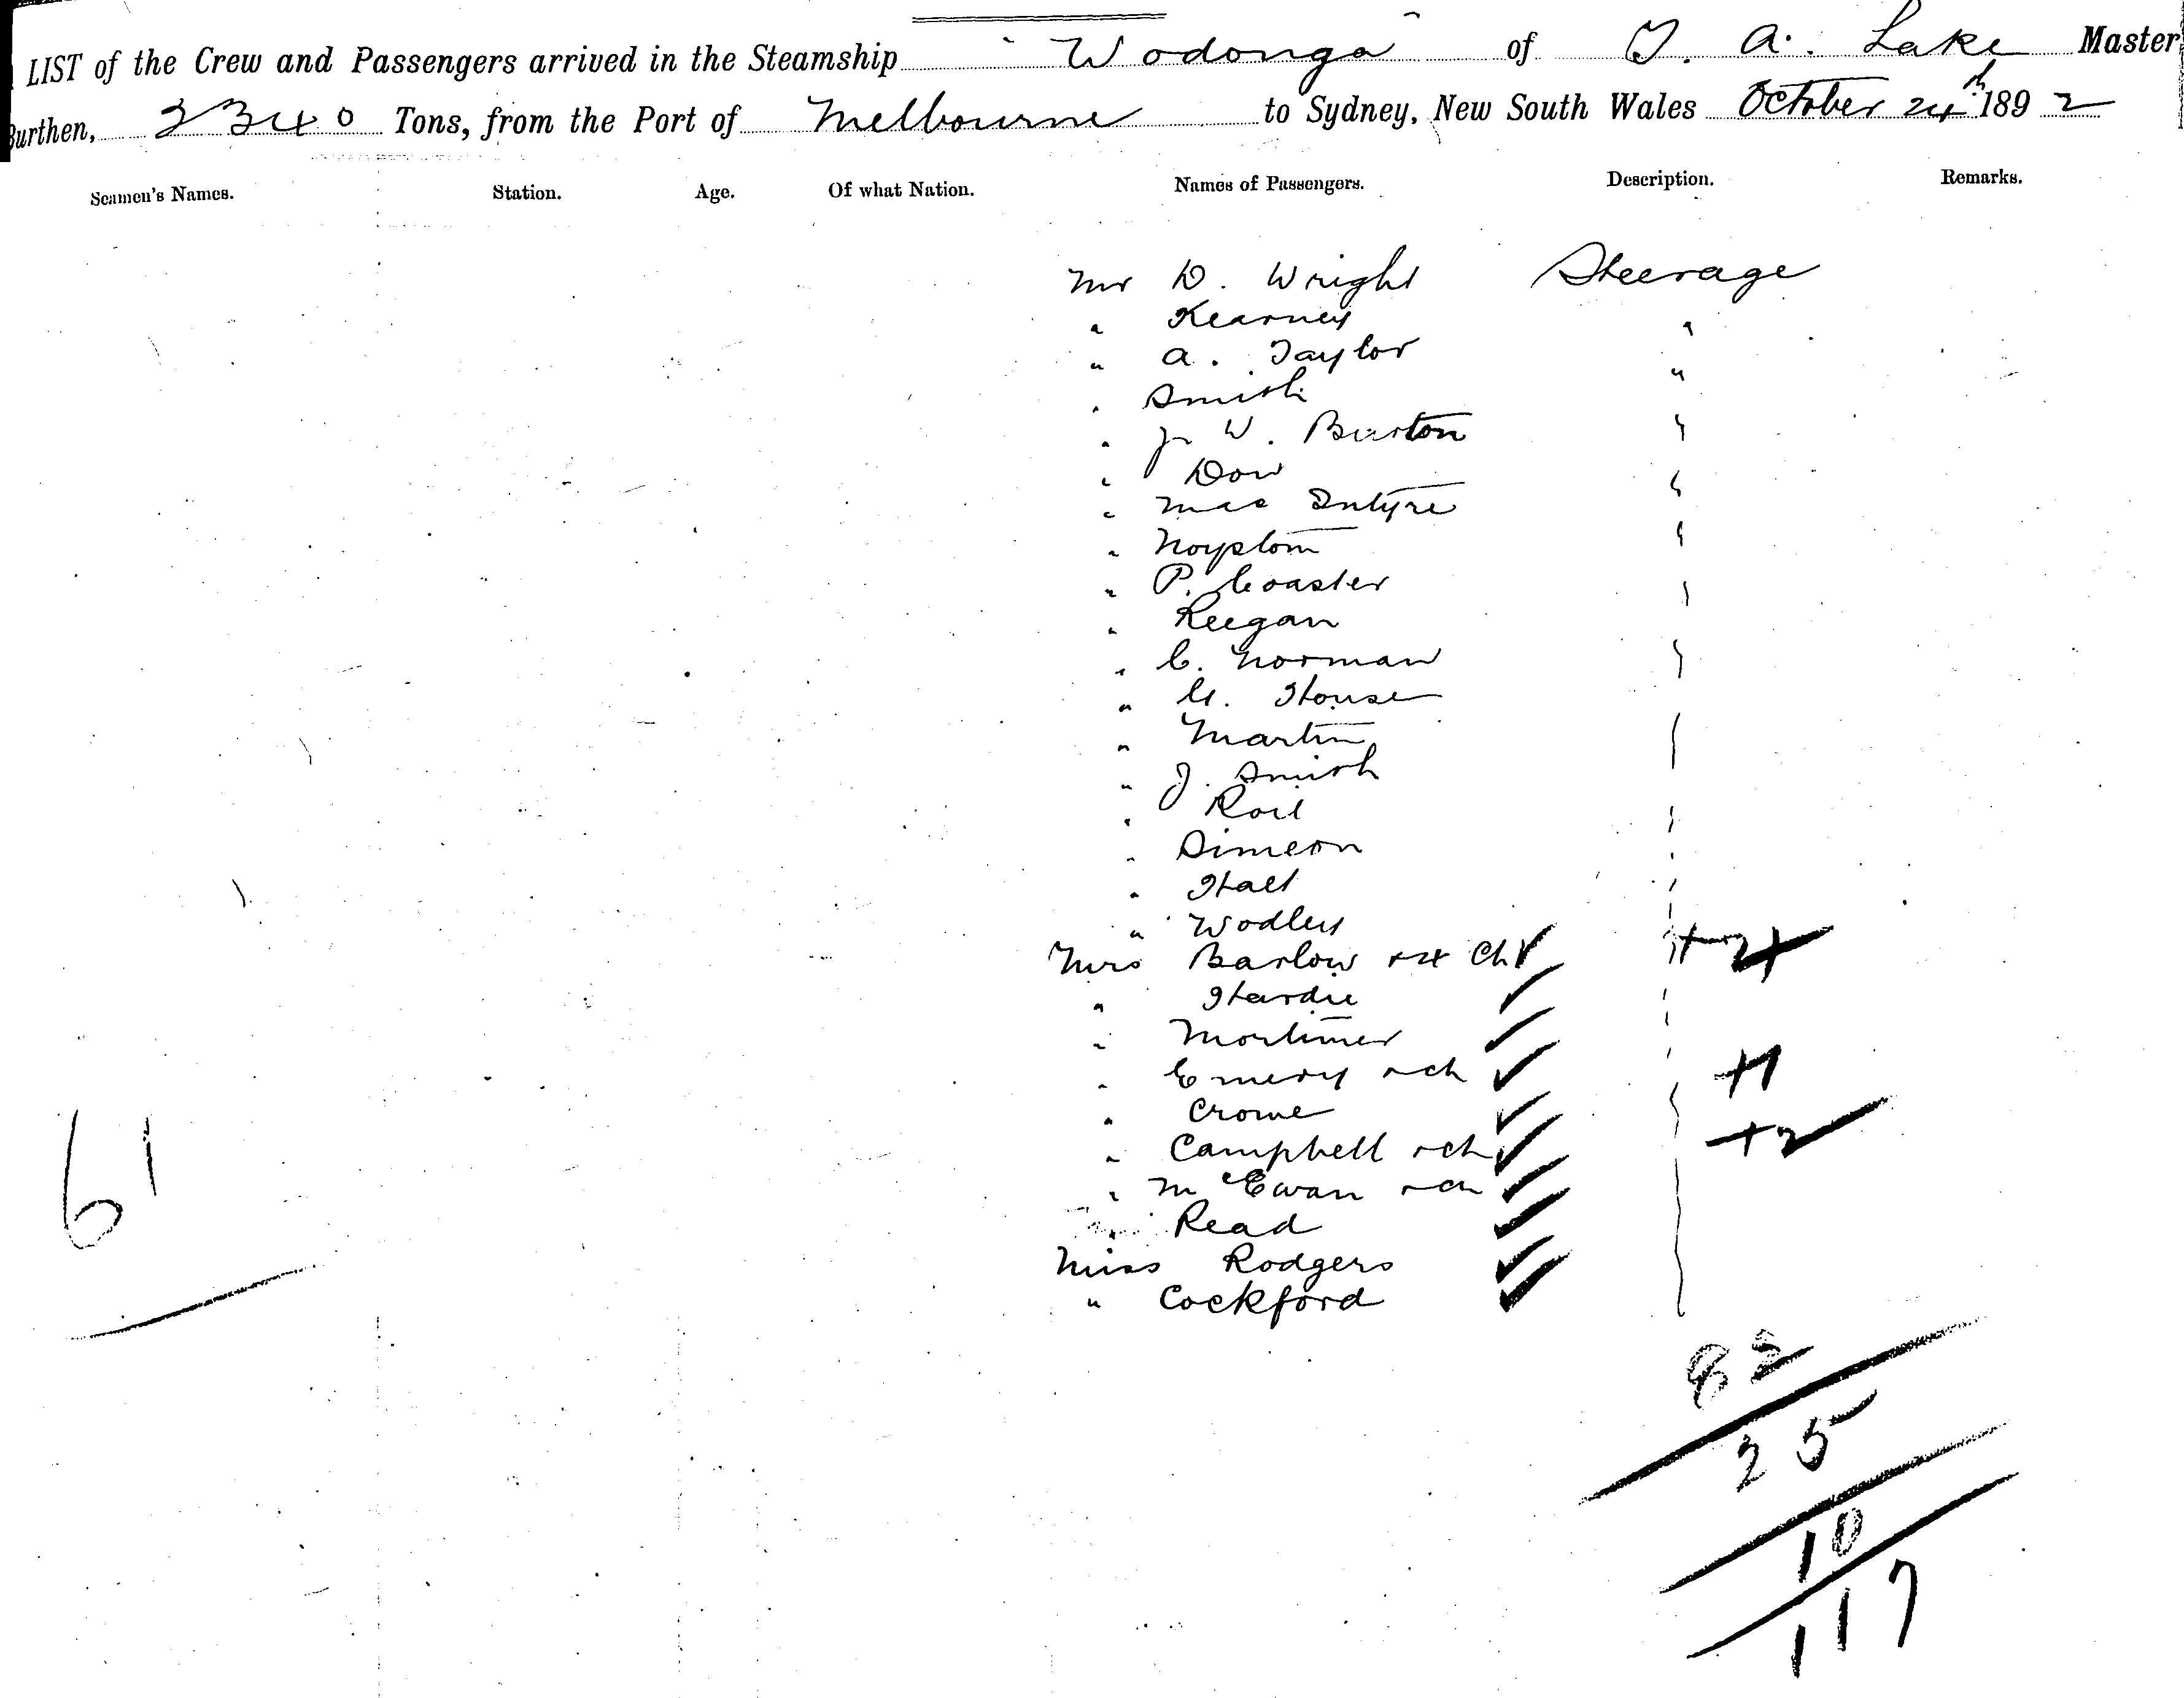 LIST of the Crew and Passengers arrived in the Steamship Wodonga of T. A. Lake Master
Burthen, 2340 Tons, from the Port of Melbourne to Sydney, New South Wales October 24th 1892
Seamen's Names. Station. Age. Of what Nation. Names of Passengers. Description. Remarks.
Mr D. Wright Steerage
" Kearney "
" A. Taylor "
" Smith
" J W. Burton "
" Dow "
" Mac Intyre "
" P. Coaster
" Reegan
" C. Norman
" House
" Martin
" J. Smith
" Simeon
" Hall
" Wodley
Mrs Barlow + 4 Ch +4
" Hardie
" Mortimer
" Emery + ch +1
" Crowe
" Campbell + ch +2
" McEwan + ch
" Read
Miss Rodgers
" Cockford
61
82
25
10
117